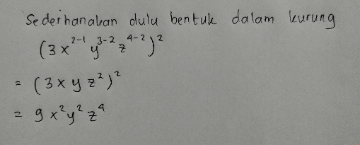 Sederhanakan dulu bentuk dalam kurung
(3x²⁻¹ y³⁻² z⁴⁻²)²
= (3xyz²)²
= 9x²y²z⁴